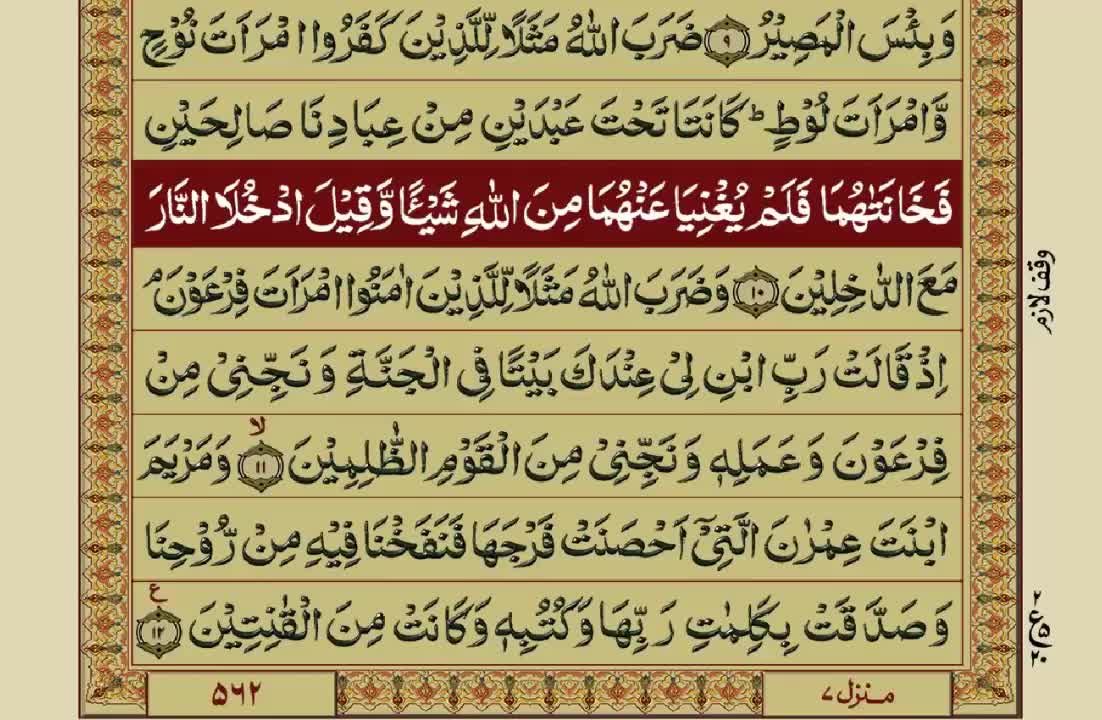 وَبِئْسَ الْمَصِيْرُ ﴿۹﴾ ضَرَبَ اللّٰهُ مَثَلًا لِّلَّذِيْنَ كَفَرُوا امْرَاَتَ نُوْحٍ
وَّامْرَاَتَ لُوْطٍ ؕ كَانَتَا تَحْتَ عَبْدَيْنِ مِنْ عِبَادِنَا صَالِحَيْنِ
فَخَانَتٰهُمَا فَلَمْ يُغْنِيَا عَنْهُمَا مِنَ اللّٰهِ شَيْـًٔا وَّقِيْلَ ادْخُلَا النَّارَ
مَعَ الدّٰخِلِيْنَ ﴿۱۰﴾ وَضَرَبَ اللّٰهُ مَثَلًا لِّلَّذِيْنَ اٰمَنُوا امْرَاَتَ فِرْعَوْنَ ۘ
اِذْ قَالَتْ رَبِّ ابْنِ لِيْ عِنْدَكَ بَيْتًا فِي الْجَنَّةِ وَنَجِّنِيْ مِنْ
فِرْعَوْنَ وَعَمَلِهٖ وَنَجِّنِيْ مِنَ الْقَوْمِ الظّٰلِمِيْنَ ﴿۱۱﴾ ۙ وَمَرْيَمَ
ابْنَتَ عِمْرٰنَ الَّتِيْۤ اَحْصَنَتْ فَرْجَهَا فَنَفَخْنَا فِيْهِ مِنْ رُّوْحِنَا
وَصَدَّقَتْ بِكَلِمٰتِ رَبِّهَا وَكُتُبِهٖ وَكَانَتْ مِنَ الْقٰنِتِيْنَ ﴿۱۲﴾ ع
وقف لازم
منزل ۷
۵۶۲